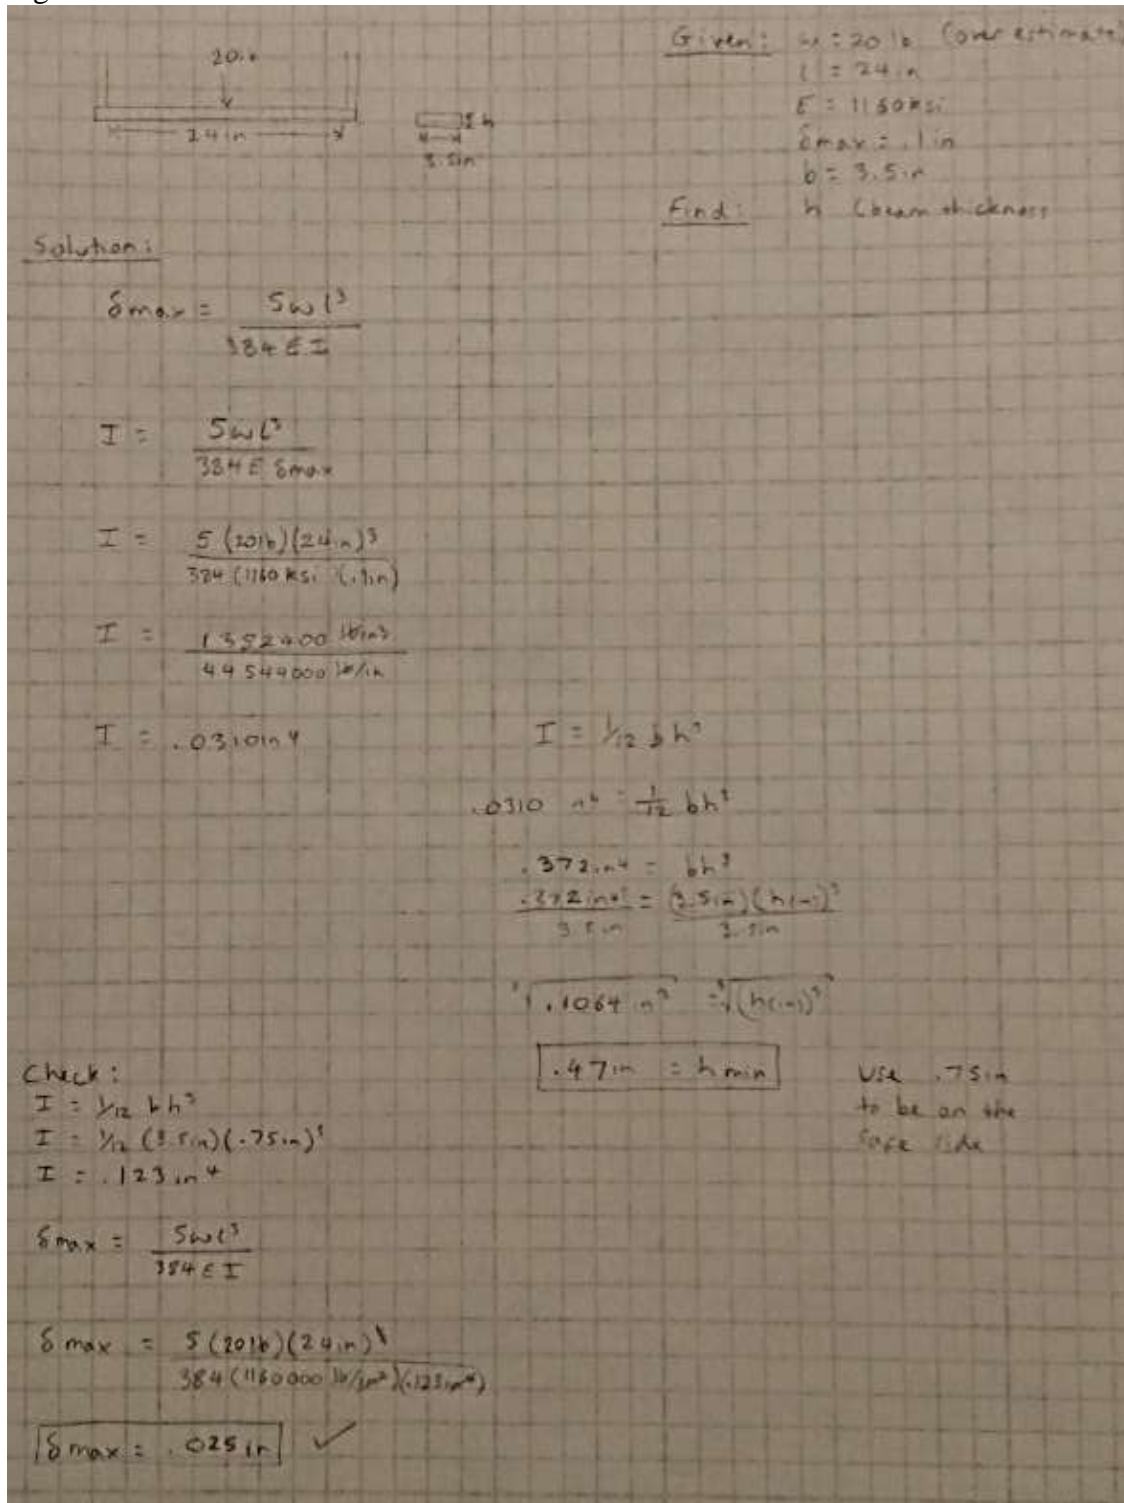 Given: w = 20 lb (over estimate)
l = 24 in
E = 1160 ksi
δmax = .1 in
b = 3.5 in
Find: h (beam thickness
20
24 in
h
3.5in
Solution:
δmax = 5wl³
384 E I
I = 5wl³
384 E δmax
I = 5 (20lb)(24in)³
384 (1160 ksi (.1in)
I = 1382400 lbin³
44544000 lb/in
I = .0310in⁴
I = 1/12 bh³
.0310 in⁴ = 1/12 bh³
.372in⁴ = bh³
.372in⁴ = (3.5in)(h(in))³
3.5in 3.5in
³√.1064 in³ = ³√(h(in))³
.47in = h min
Use .75in
to be on the
safe side
Check:
I = 1/12 bh³
I = 1/12 (3.5in)(.75in)³
I = .123in⁴
δmax = 5wl³
384 E I
δmax = 5 (20lb)(24in)³
384 (1160000 lb/in²)(.123in⁴)
δmax = .025in ✓